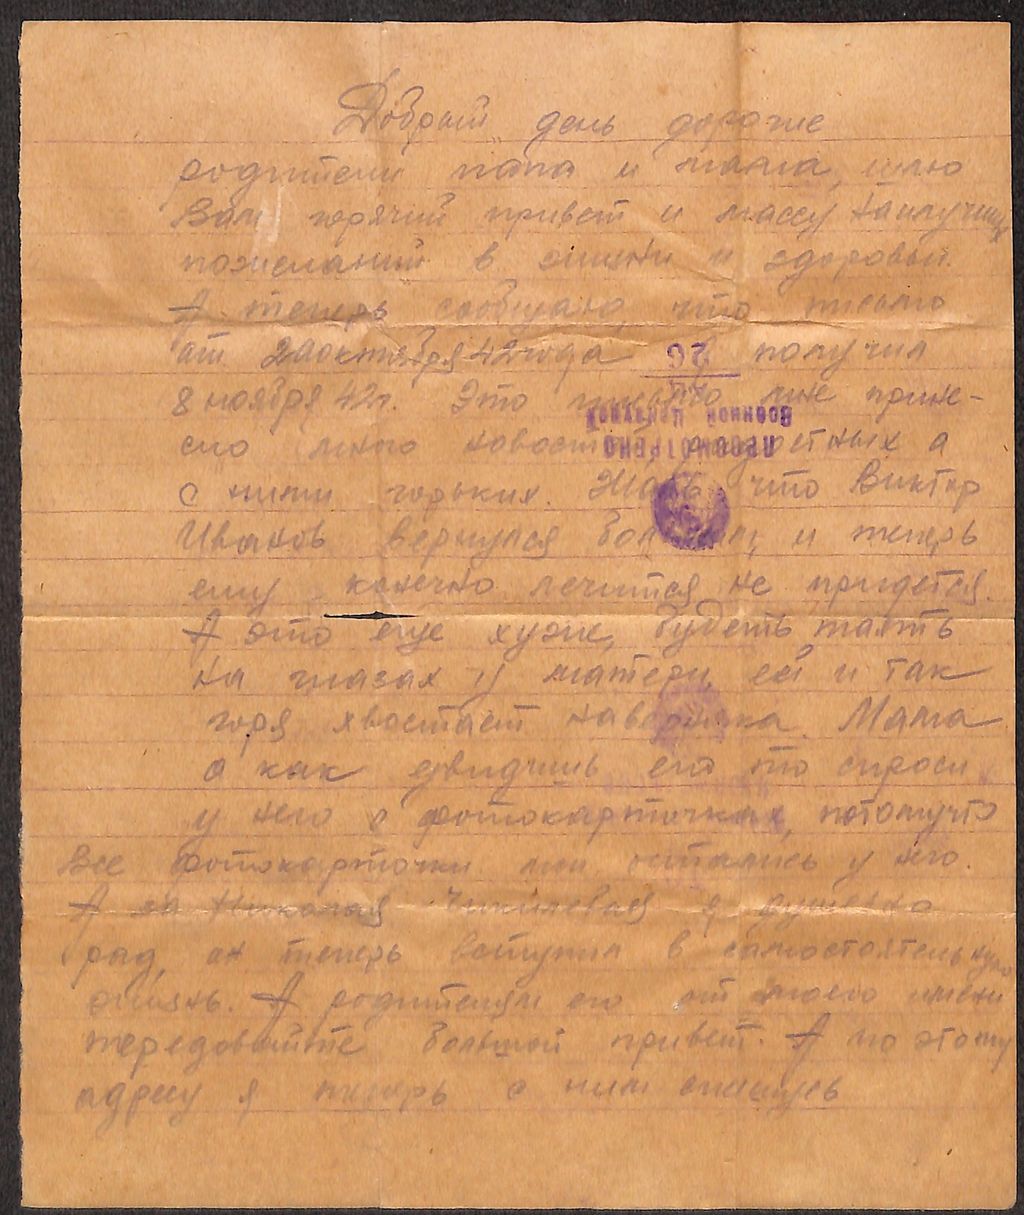 Добрый день дорогие
родители папа и мама, шлю
Вам горячий привет и массу наилучших
пожеланий в жизни и здоровьи.
А теперь сообщаю, что письмо
от 20 октября 42 года я получил
8 ноября 42г. Это письмо мне прине-
сло много новостей, радостных а
с ними горьких. Жаль что Виктор
Иванов вернулся больным, и теперь
ему конечно лечится не придется.
А это еще хуже, будеть таять
на глазах у матери, ей и так
горя хвастает наверняка. Мама
а как увидишь его то спроси
у него о фотокарточках, потомучто
все фотокарточки мои остались у него.
А за Николая я душевно
рад, он теперь вступил в самостоятельную
жизнь. А родителям его от моего имени
передовайте большой привет. А по этому
адресу я теперь с ним спишусь
26
ПРОСМОТРЕНО
Военной Цензурой